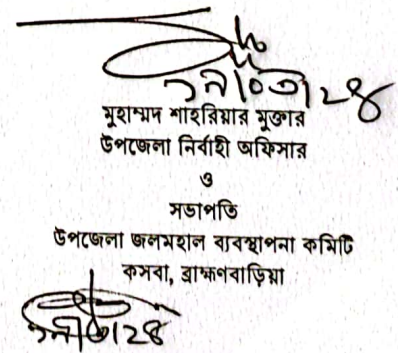 মুহাম্মদ শাহরিয়ার মুক্তার
উপজেলা নির্বাহী অফিসার
ও
সভাপতি
উপজেলা জলমহাল ব্যবস্থাপনা কমিটি
কসবা, ব্রাহ্মণবাড়িয়া